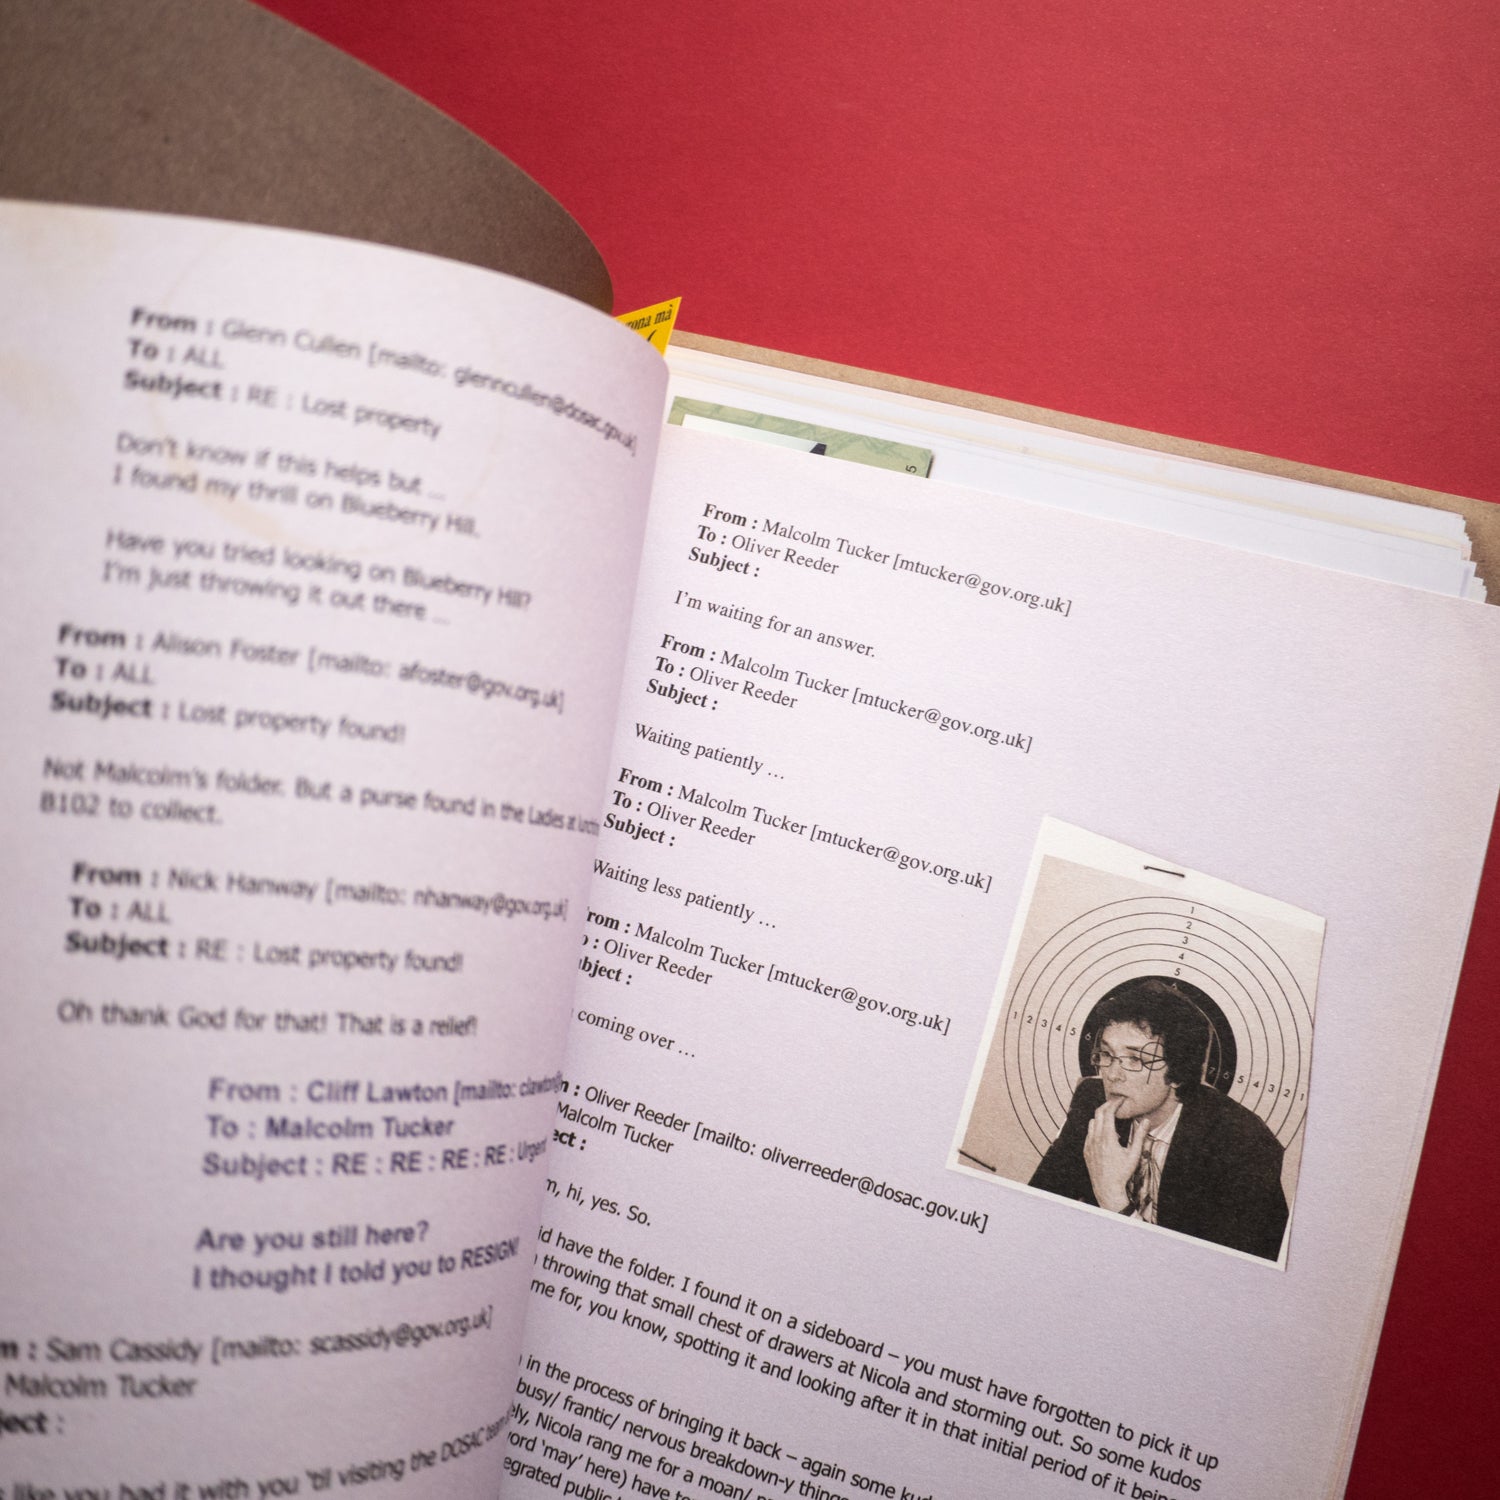 From : Glenn Cullen [mailto: glenncullen@dosac.gov.uk]
To : ALL
Subject : RE : Lost property
Don't know if this helps but ...
I found my thrill on Blueberry Hill.
Have you tried looking on Blueberry Hill?
I'm just throwing it out there ...
From : Alison Foster [mailto: afoster@gov.org.uk]
To : ALL
Subject : Lost property found!
Not Malcolm's folder. But a purse found in the Ladies at
B102 to collect.
From : Nick Hanway [mailto: nhanway@gov.org.uk]
To : ALL
Subject : RE : Lost property found!
Oh thank God for that! That is a relief!
From : Cliff Lawton [mailto:
To : Malcolm Tucker
Subject : RE : RE : RE : RE : Urgent
Are you still here?
I thought I told you to RESIGN!
m : Sam Cassidy [mailto: scassidy@gov.org.uk]
Malcolm Tucker
ject :
like you had it with you 'til visiting the DOSAC team
rona mà
5
From : Malcolm Tucker [mtucker@gov.org.uk]
To : Oliver Reeder
Subject :
I'm waiting for an answer.
From : Malcolm Tucker [mtucker@gov.org.uk]
To : Oliver Reeder
Subject :
Waiting patiently …
From : Malcolm Tucker [mtucker@gov.org.uk]
To : Oliver Reeder
Subject :
Waiting less patiently …
From : Malcolm Tucker [mtucker@gov.org.uk]
o : Oliver Reeder
bject :
coming over …
m : Oliver Reeder [mailto: oliverreeder@dosac.gov.uk]
Malcolm Tucker
ect :
m, hi, yes. So.
id have the folder. I found it on a sideboard – you must have forgotten to pick it up
throwing that small chest of drawers at Nicola and storming out. So some kudos
me for, you know, spotting it and looking after it in that initial period of it being
in the process of bringing it back – again some kudos
busy/ frantic/ nervous breakdown-y things
ely, Nicola rang me for a moan/
word 'may' here) have
egrated public
1
2
3
4
5
1 2 3 4 5 6
7 6 5 4 3 2 1